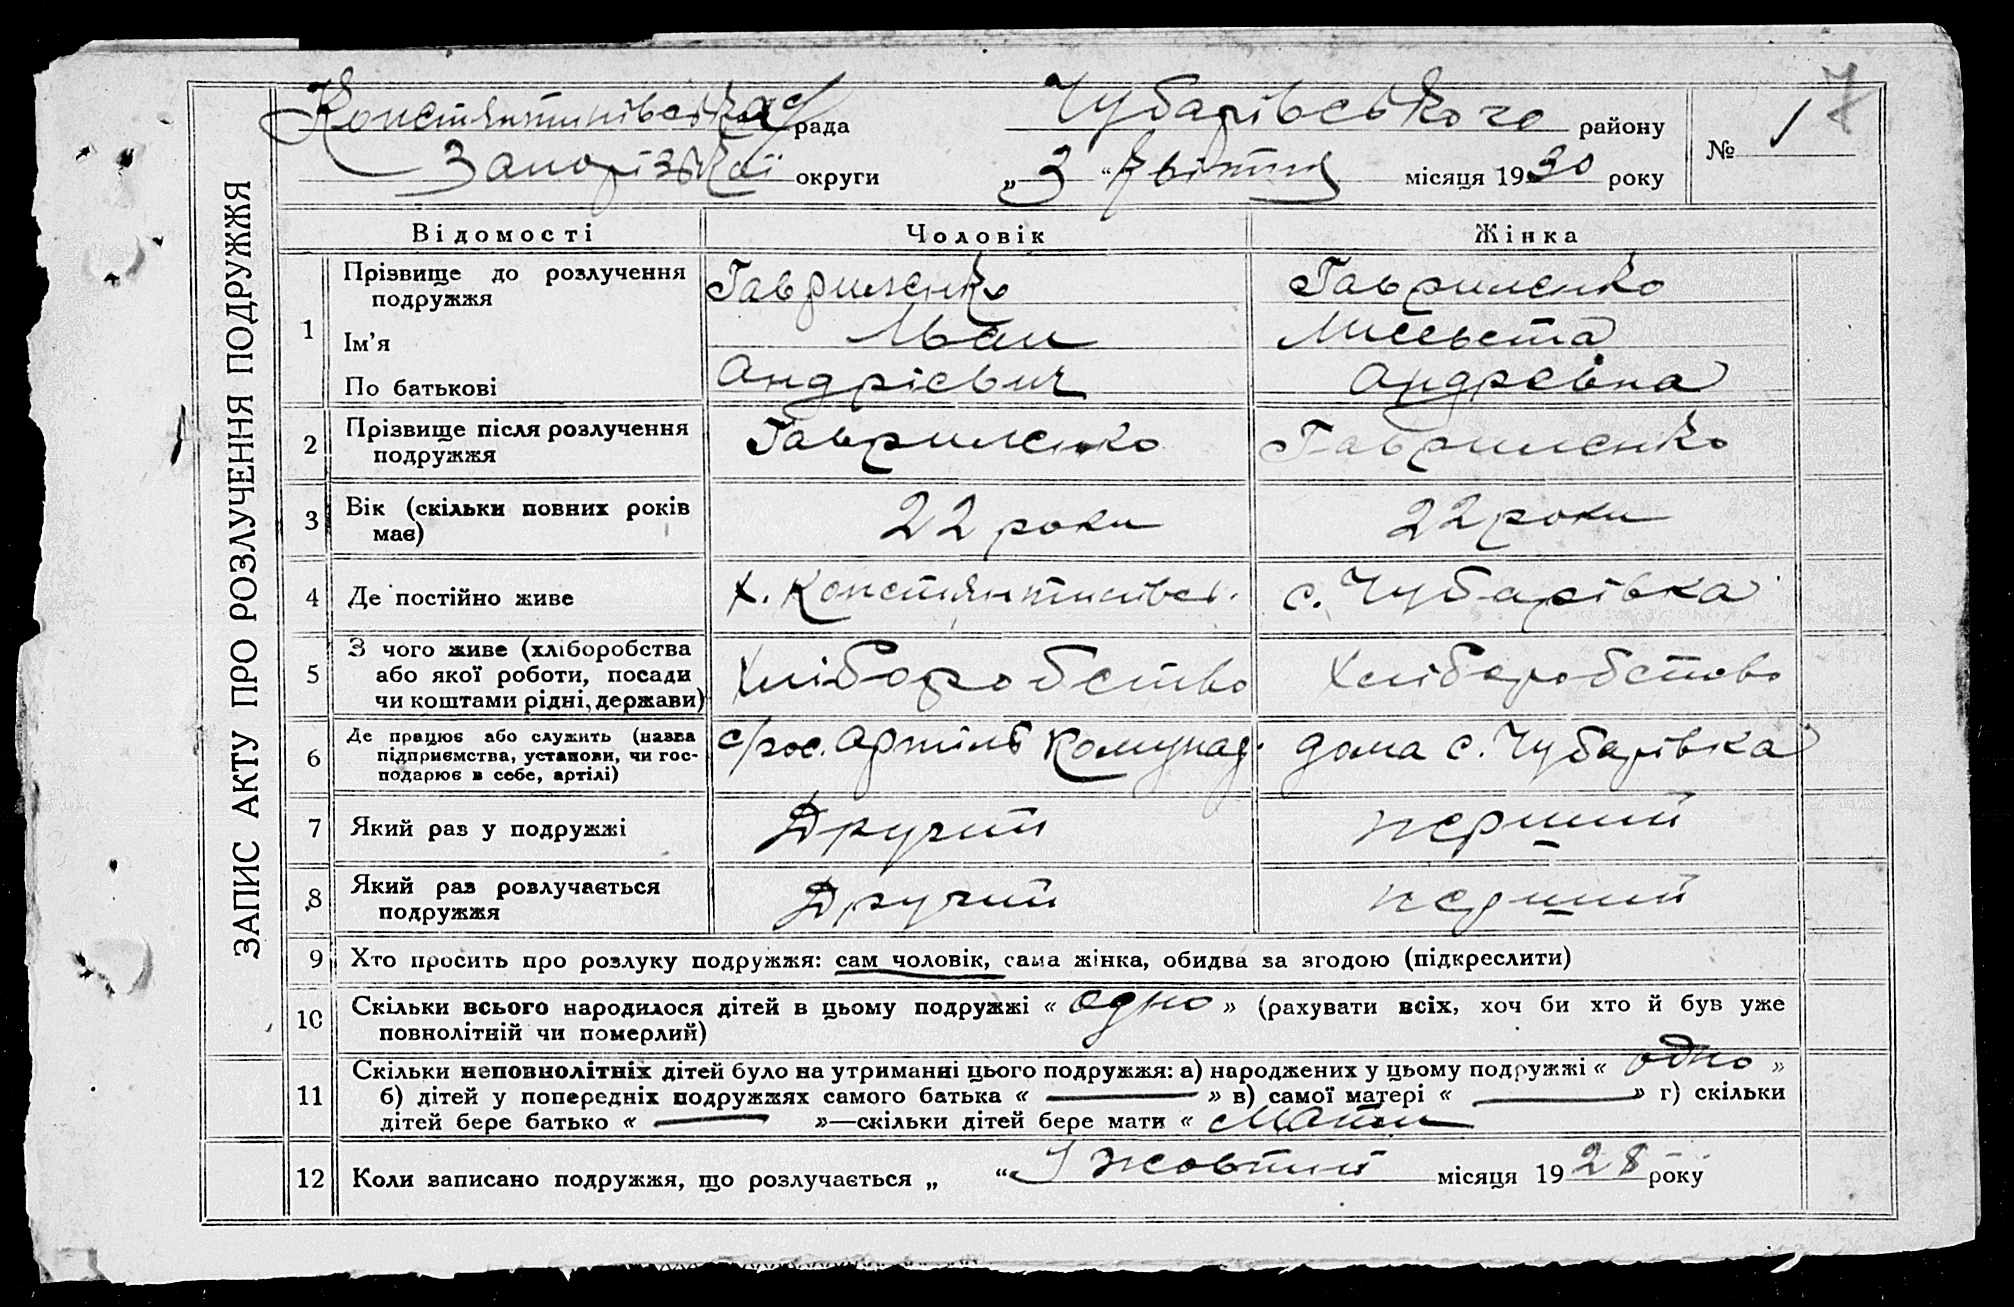 Констянтинівська с/рада Чубарівського району № 1
Запорізької округи „3“ квітня місяця 1930 року
ЗАПИС АКТУ ПРО РОЗЛУЧЕННЯ ПОДРУЖЖЯ
Відомості Чоловік Жінка
1 Прізвище до розлучення подружжя Гавриленко Гавриленко
Ім’я Іван
По батькові Андрієвич Андреівна
2 Прізвище після розлучення подружжя Гавриленко Гавриленко
3 Вік (скільки повних років має) 22 роки 22 роки
4 Де постійно живе х. Констянтинівськ. с. Чубарівка
5 З чого живе (хліборобства або якої роботи, посади чи коштами рідні, держави) Хліборобство Хліборобство
6 Де працює або служить (назва підприємства, установи, чи господарює в себе, артілі) артіль дома с. Чубарівка
7 Який раз у подружжі Другий перший
8 Який раз розлучається подружжя Другий перший
9 Хто просить про розлуку подружжя: сам чоловік, сама жінка, обидва за згодою (підкреслити)
10 Скільки всього народилося дітей в цьому подружжі « одно » (рахувати всіх, хоч би хто й був уже
повнолітній чи померлий)
11 Скільки неповнолітніх дітей було на утриманні цього подружжя: а) народжених у цьому подружжі « одно »
б) дітей у попередніх подружжях самого батька « — » в) самої матері « — » г) скільки
дітей бере батько « — »—скільки дітей бере мати « Мати
12 Коли записано подружжя, що розлучається „ “ жовтня місяця 1928 року